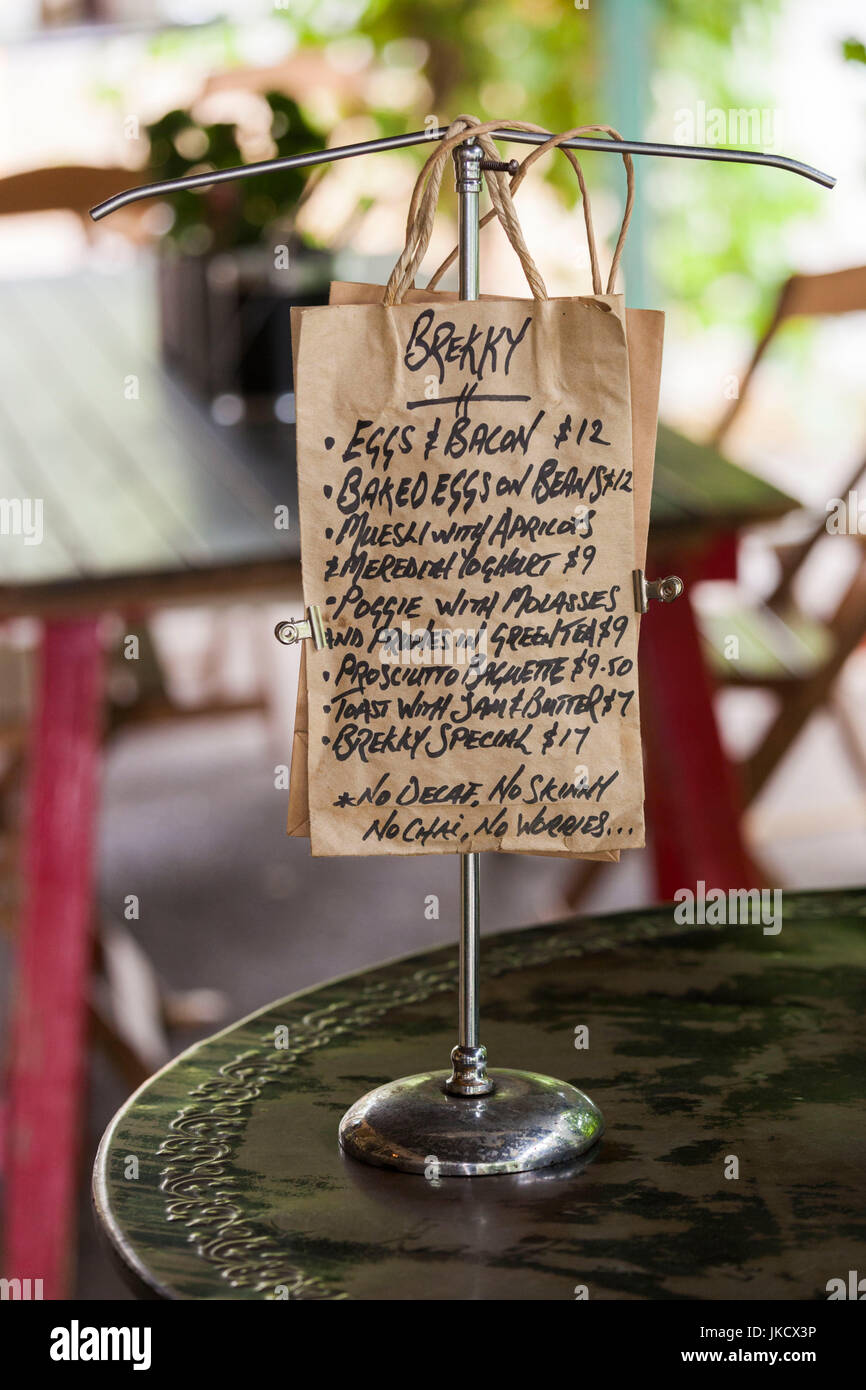 BREKKY
• EGGS & BACON $12
• BAKED EGGS ON BEANS $12
• MUESLI WITH APRICOTS
& MEREDITH YOGHURT $9
• POGGIE WITH MOLASSES
AND PRUNES IN GREEN TEA $9
• PROSCIUTTO BAGUETTE $9.50
• TOAST WITH JAM & BUTTER $7
• BREKKY SPECIAL $17
*NO DECAF, NO SKINNY
NO CHAI, NO WORRIES...
alamy
Image ID: JKCX3P
www.alamy.com